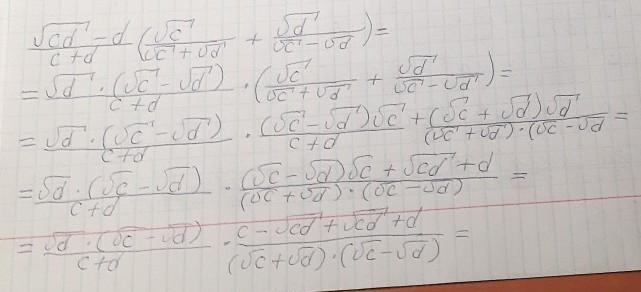 (√cd - d)/(c+d) (√c/(√c + √d) + √d/(√c - √d)) =
= (√d · (√c - √d))/(c+d) · (√c/(√c + √d) + √d/(√c - √d)) =
= (√d · (√c - √d))/(c+d) · ((√c - √d)√c + (√c + √d)√d)/(c+d (√c + √d) · (√c - √d) =
= (√d · (√c - √d))/(c+d) · ((√c - √d)√c + √cd + d)/((√c + √d) · (√c - √d)) =
= (√d · (√c - √d))/(c+d) · (c - √cd + √cd + d)/((√c + √d) · (√c - √d)) =